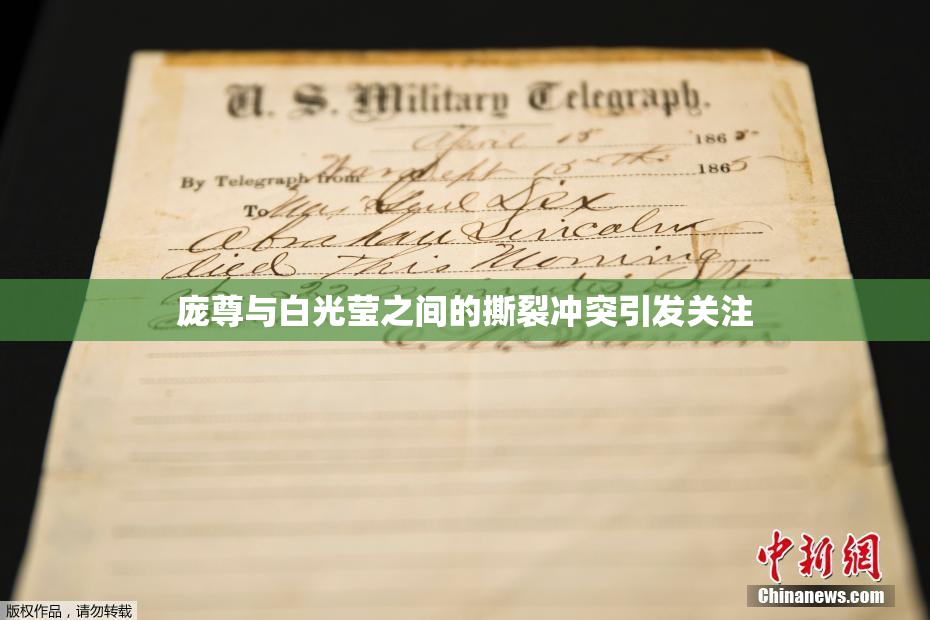 U. S. Military Telegraph.
April 15 1865
By Telegraph from War Dept 15th 1865
To Maj Genl Dix
Abraham Lincoln
died This Morning
at 22 minutes after
庞尊与白光莹之间的撕裂冲突引发关注
E. M. Stanton
中新网
Chinanews.com
版权作品,请勿转载